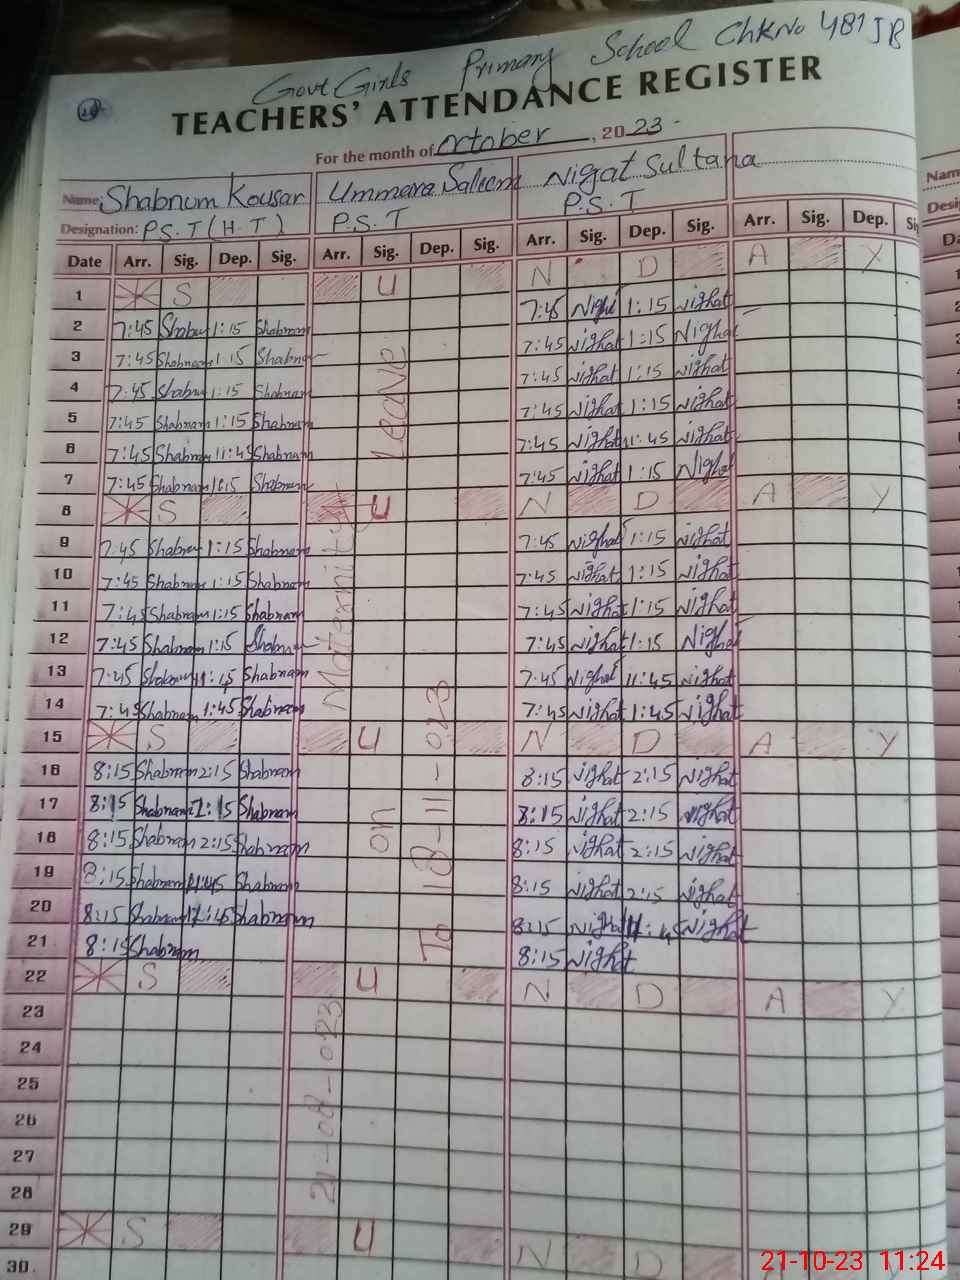 Govt Girls Primary School Chk No 481 JB
TEACHERS' ATTENDANCE REGISTER
For the month of October, 2023
Name Shabnum Kousar Ummara Saleem Nigat Sultana
Designation: P.S.T (H.T) P.S.T P.S.T
Date Arr. Sig. Dep. Sig. Arr. Sig. Dep. Sig. Arr. Sig. Dep. Sig. Arr. Sig. Dep.
1 S U N D A Y
2 7:45 1:15 Shabnam 7:45 1:15 Nighat
3 7:45 Shabnam 1:15 7:45 Nighat 1:15 Nighat
4 7:45 1:15 Shabnam 7:45 Nighat 1:15 Nighat
5 7:45 Shabnam 1:15 Shabnam 7:45 Nighat 1:15 Nighat
6 7:45 Shabnam 11:45 Shabnam 7:45 Nighat 11:45 Nighat
7 7:45 Shabnam 1:15 Shabnam 7:45 Nighat 1:15 Nighat
8 S U N D A Y
9 7:45 1:15 Shabnam 7:45 Nighat 1:15 Nighat
10 7:45 Shabnam 1:15 Shabnam 7:45 Nighat 1:15 Nighat
11 7:45 Shabnam 1:15 Shabnam 7:45 Nighat 1:15 Nighat
12 7:45 Shabnam 1:15 7:45 Nighat 1:15 Nighat
13 7:45 11:45 Shabnam 7:45 Nighat 11:45 Nighat
14 7:45 Shabnam 1:45 Shabnam 7:45 Nighat 1:45 Nighat
15 S U N D A Y
16 8:15 Shabnam 2:15 Shabnam 8:15 Nighat 2:15 Nighat
17 8:15 Shabnam 2:15 Shabnam 8:15 Nighat 2:15 Nighat
18 8:15 Shabnam 2:15 Shabnam 8:15 Nighat 2:15 Nighat
19 8:15 Shabnam Shabnam 8:15 Nighat 2:15 Nighat
20 8:15 Shabnam Shabnam 8:15 Nighat Nighat
21 8:15 Shabnam 8:15 Nighat
22 S U N D A Y
23
24
25
26
27
28
29 S U N D
30
Maternity Leave
on
21-08-023
To 18-11-023
21-10-23 11:24